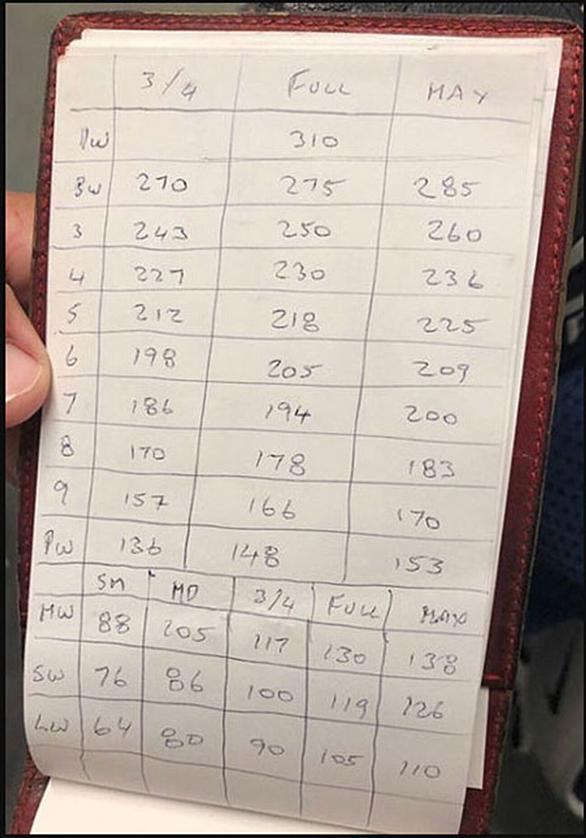 3/4 FULL MAX
1W 310
3W 270 275 285
3 243 250 260
4 227 230 236
5 212 218 225
6 198 205 209
7 186 194 200
8 170 178 183
9 157 166 170
PW 136 148 153
SM MD 3/4 FULL MAX
MW 88 205 117 130 138
SW 76 86 100 119 126
LW 64 80 90 105 110